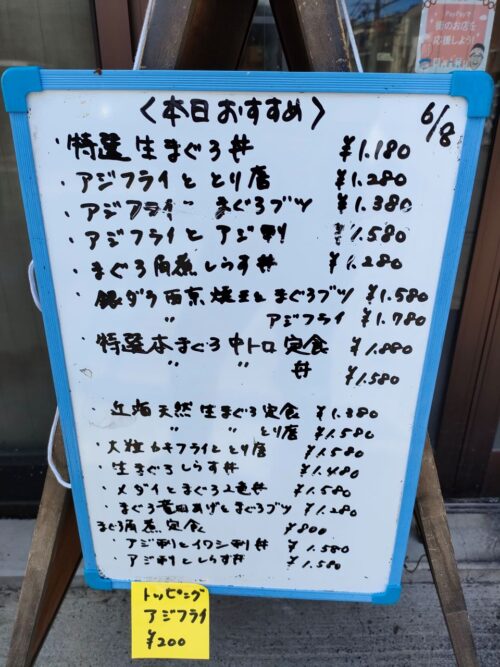 PayPayで
街のお店を
応援しよう!
〈本日おすすめ〉 6/8
・特選生まぐろ丼 ¥1.180
・アジフライととり唐 ¥1.280
・アジフライ〃まぐろブツ ¥1.380
・アジフライとアジ刺 ¥1.580
・まぐろ角煮しらす丼 ¥1.280
・銀ダラ西京焼きとまぐろブツ ¥1.580
〃 アジフライ ¥1.780
・特選本まぐろ中トロ定食 ¥1.880
〃 〃 丼 ¥1.580
・近海天然生まぐろ定食 ¥1.380
〃 〃 とり唐 ¥1.580
・大粒カキフライととり唐 ¥1.580
・生まぐろしらす丼 ¥1.480
・メダイとまぐろ2色丼 ¥1.580
・まぐろ竜田あげとまぐろブツ ¥1.280
まぐろ角煮定食 ¥800
・アジ刺とイワシ刺丼 ¥1.580
・アジ刺としらす丼 ¥1.580
トッピング
アジフライ
¥200